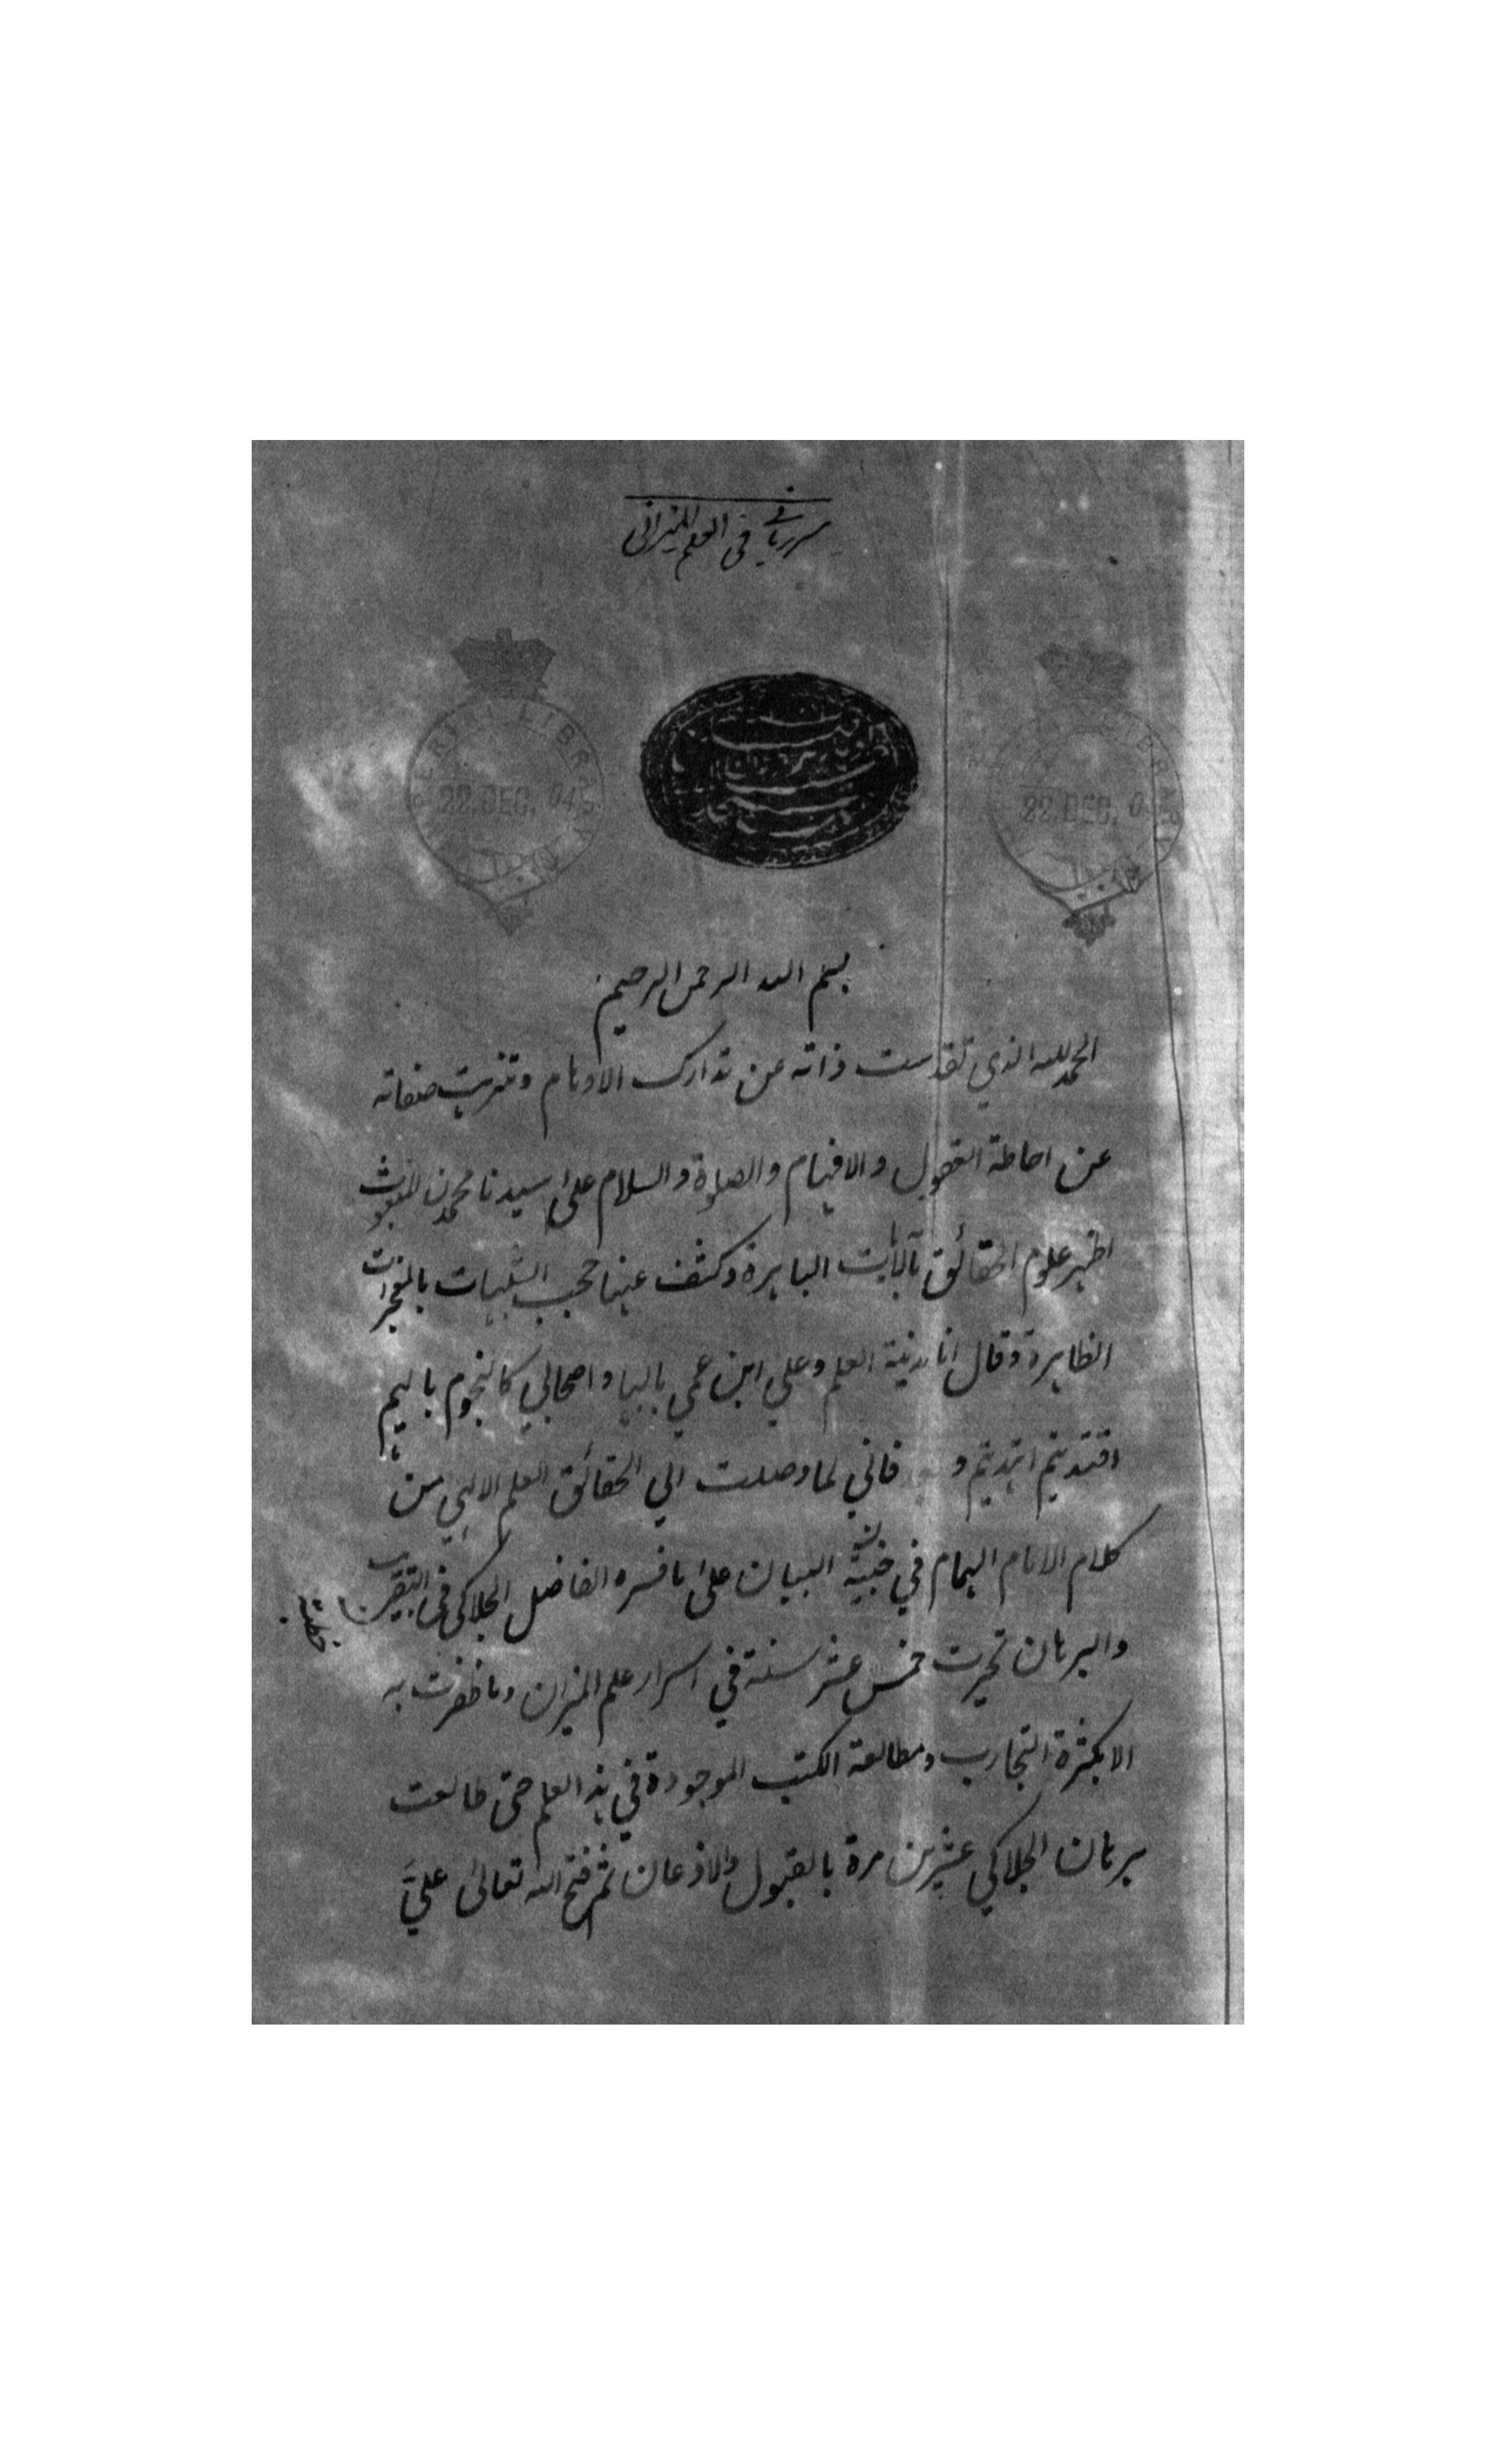 سرربانی فی العلم المیزانی
IMPERIAL LIBRARY
22.DEC.04
LIBRARY
22.DEC.0
بسم الله الرحمن الرحیم
الحمدلله الذي تقدست ذاته عن تدارک الاوهام وتنزهت صفاته
عن احاطة العقول والافهام والصلوة والسلام علی سیدنا محمدن المبعوث
اظهر علوم الحقائق بآلایات الباهرة وکشف عینا حجب الشبهات بالمعجزات
الظاهرة وقال انا مدینة العلم وعلي ابن عمي بابها واصحابي کالنجوم بایهم
اقتدیتم اهتدیتم و فاني لما وصلت الي الحقائق العلم الالهي من
کلام الامام الهمام في البیان علی ما فسره الفاضل الجلدکی فی التقریب
والبرهان تحیرت خمس عشر سنة في اسرار علم المیزان وما ظفرت به
الا بکثرة التجارب ومطالعة الکتب الموجودة في هذ العلم حتی طالعت
برهان الجلدکي عشرین مرة بالقبول والاذعان ثم فتح الله تعالی عليَّ